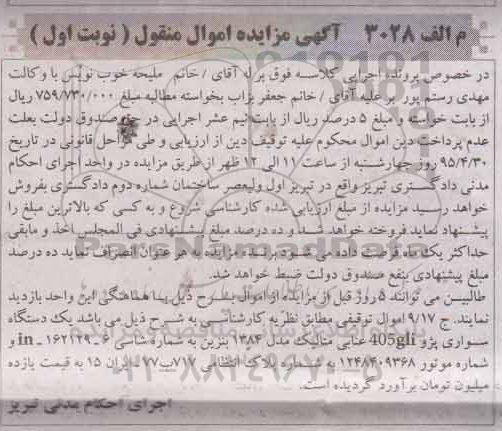 م الف ۳۰۲۸ آگهی مزایده اموال منقول ( نوبت اول )
در خصوص پرونده اجرایی کلاسه فوق برله آقای / خانم ملیحه خوب نویس با وکالت
مهدی رستم پور بر علیه آقای / خانم جعفر براب بخواسته مطالبه مبلغ ۷۵۹/۷۳۰/۰۰۰ ریال
از بابت خواسته و مبلغ ۵ درصد ریال از بابت نیم عشر اجرایی در حق صندوق دولت بعلت
عدم پرداخت دین اموال محکوم علیه توقیف دین از ارزیابی و طی مراحل قانونی در تاریخ
۹۵/۴/۳۰ روز چهارشنبه از ساعت ۱۱ الی ۱۲ ظهر از طریق مزایده در واحد اجرای احکام
مدنی دادگستری تبریز واقع در تبریز اول ولیعصر ساختمان شماره دوم دادگستری بفروش
خواهد رسید مزایده از مبلغ ارزیابی شده کارشناسی شروع و به کسی که بالاترین مبلغ را
پیشنهاد نماید فروخته خواهد شد و ده درصد مبلغ پیشنهادی فی المجلس اخذ و مابقی
حداکثر یک ماه فرصت داده می شود برنده مزایده به هر عنوان انصراف نماید ده درصد
مبلغ پیشنهادی بنفع صندوق دولت ضبط خواهد شد.
طالبین می توانند ۵ روز قبل از مزایده از اموال بشرح ذیل با هماهنگی این واحد بازدید
نمایند. ج ۹/۱۷ اموال توقیفی مطابق نظریه کارشناسی به شرح ذیل می باشد یک دستگاه
سواری پژو 405gli عنابی متالیک مدل ۱۳۸۴ بنزین به شماره شاسی ۶ - ۱۶۲۱۲۹ - in و
شماره موتور ۱۲۴۸۴۰۹۳۶۸ به شماره پلاک انتظامی ۷۱۷ب۷۷-ایران ۱۵ به قیمت یازده
میلیون تومان برآورد گردیده است.
اجرای احکام مدنی تبریز